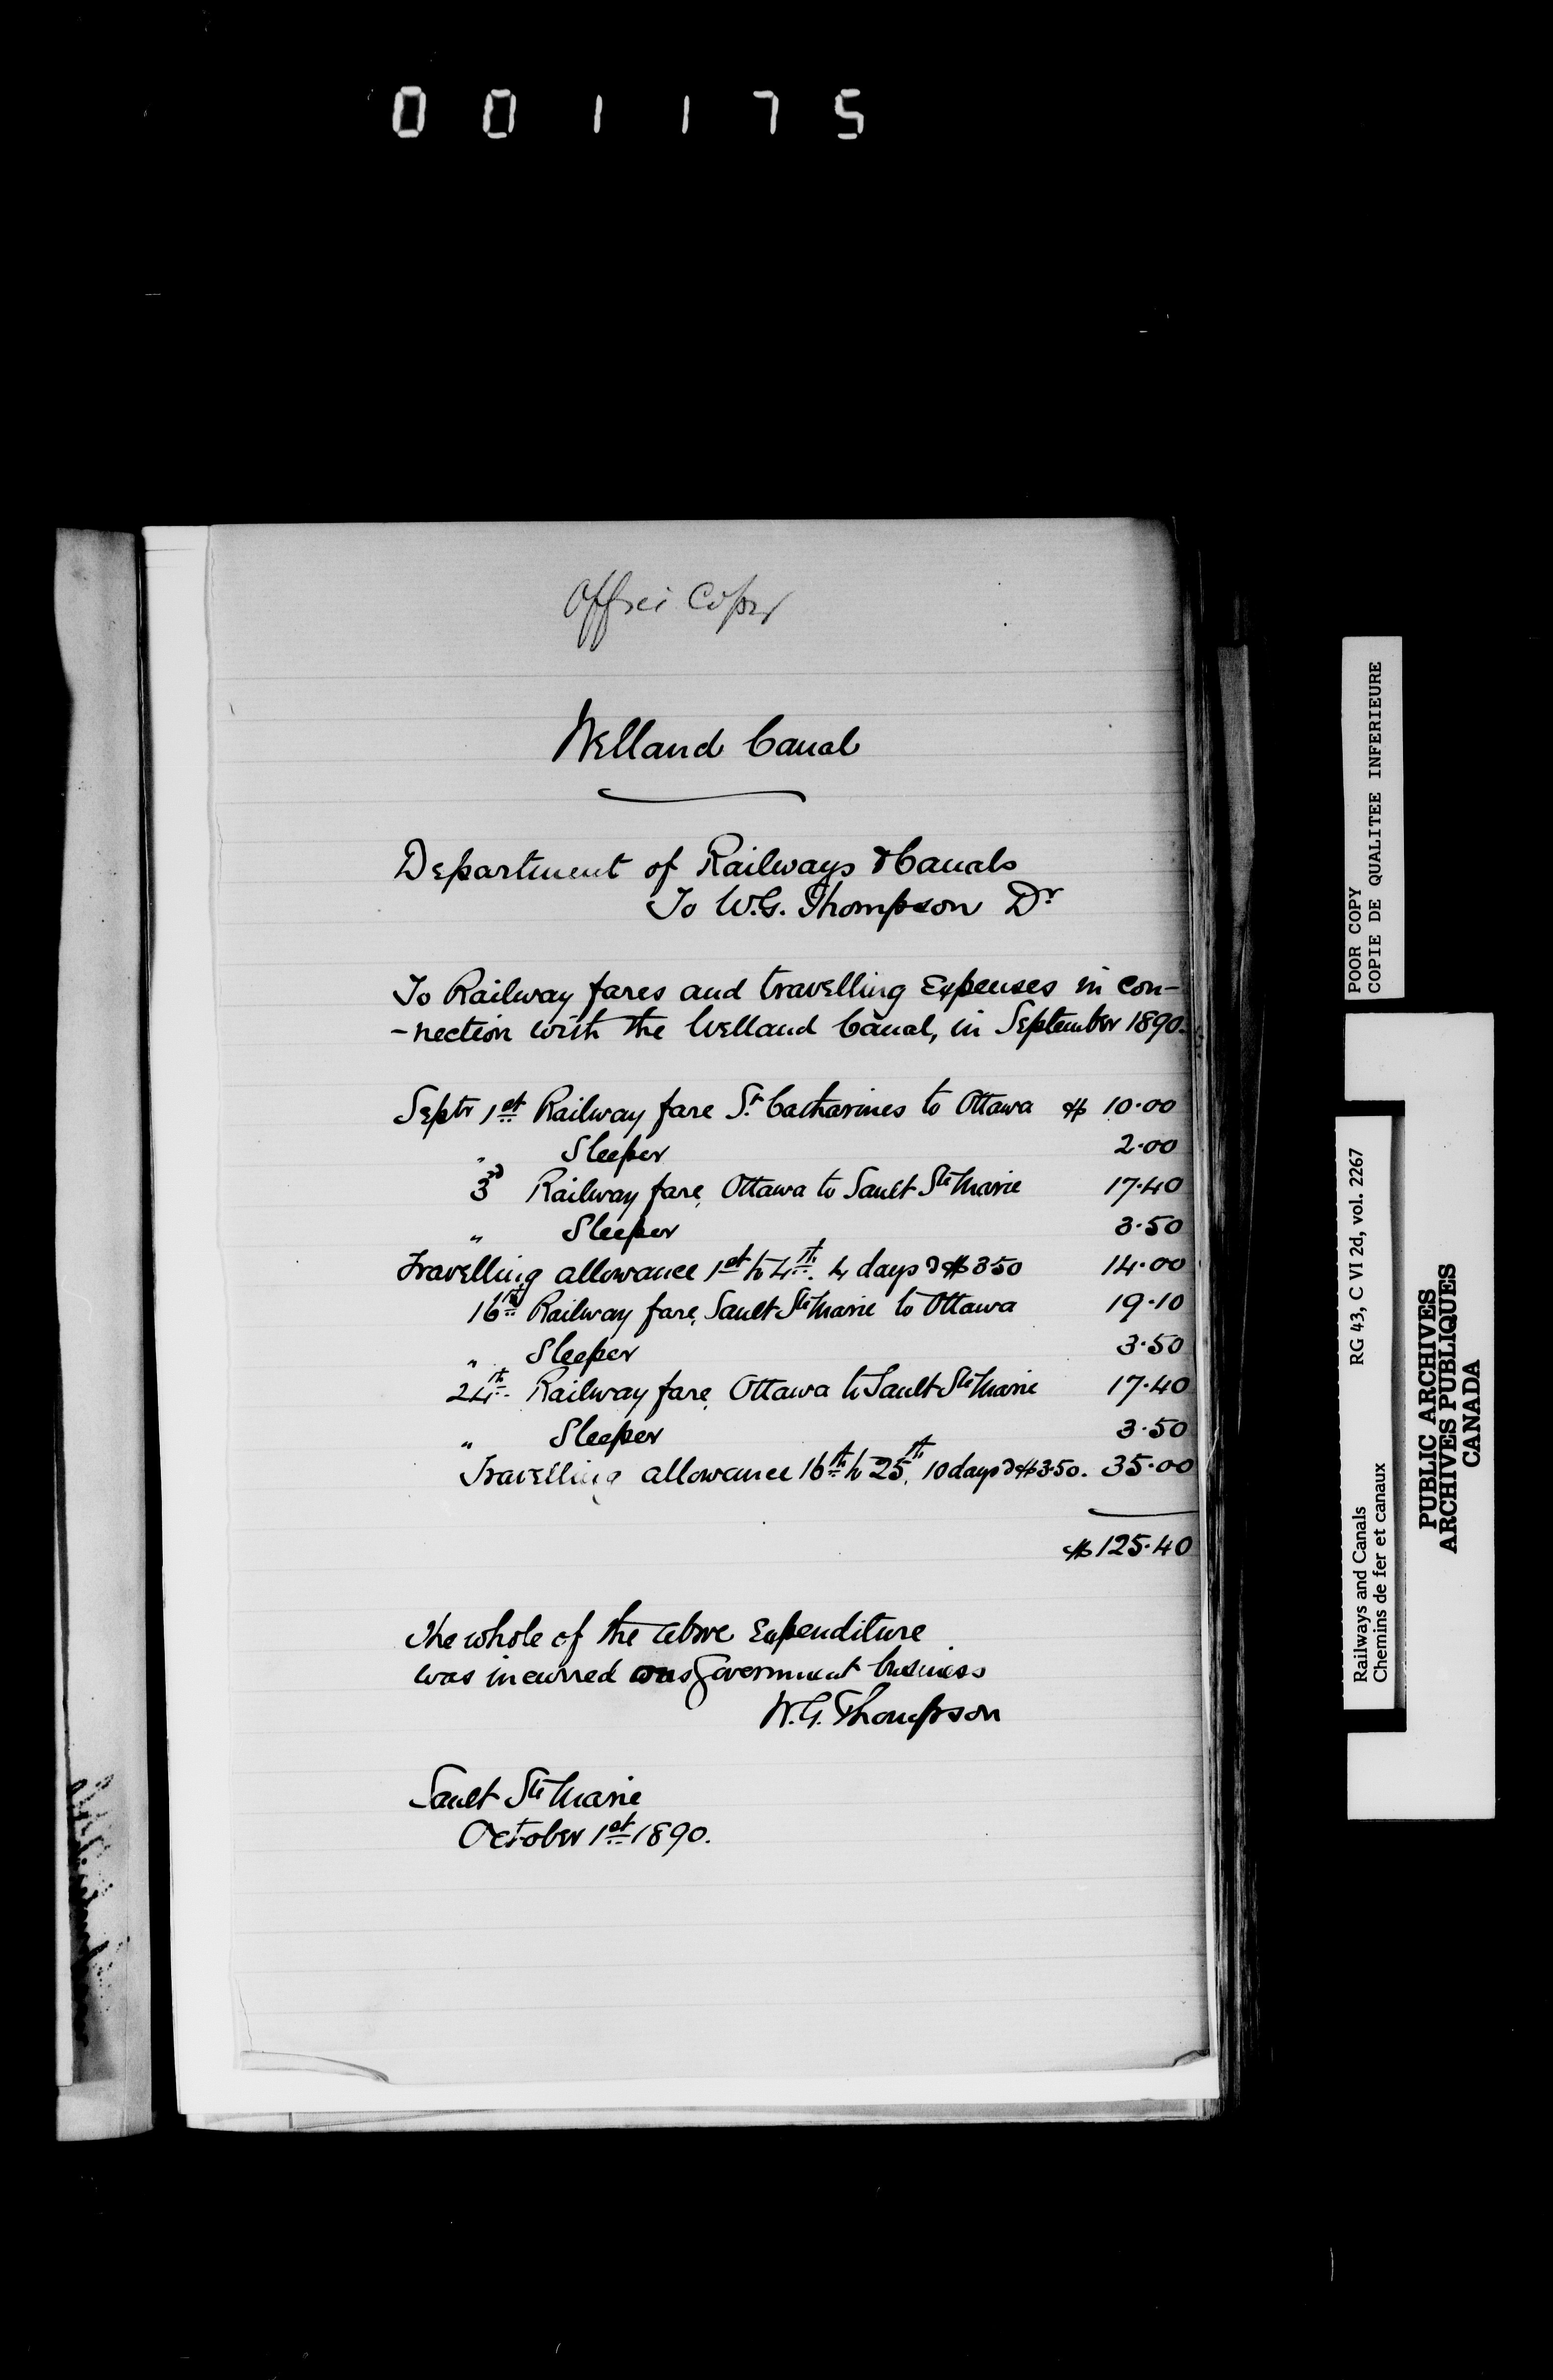 001175
Office Copy
Welland Canal
Department of Railways & Canals
To W.G. Thompson Dr
To Railway fares and travelling Expenses in con-
-nection with the Welland Canal, in September 1890.
Septr 1st Railway fare St Catharines to Ottawa $ 10.00
" Sleeper 2.00
3d Railway fare, Ottawa to Sault Ste Marie 17.40
" Sleeper 3.50
Travelling allowance 1st to 4th. 4 days @ $3.50 14.00
16th Railway fare, Sault Ste Marie to Ottawa 19.10
" Sleeper 3.50
24th Railway fare, Ottawa to Sault Ste Marie 17.40
" Sleeper 3.50
Travelling allowance 16th to 25th, 10 days @ $3.50. 35.00
$125.40
The whole of the above Expenditure
was incurred on Government business
W.G. Thompson
Sault Ste Marie
October 1st 1890.
POOR COPY
COPIE DE QUALITEE INFERIEURE
Railways and Canals RG 43, C VI 2d, vol. 2267
Chemins de fer et canaux
PUBLIC ARCHIVES
ARCHIVES PUBLIQUES
CANADA